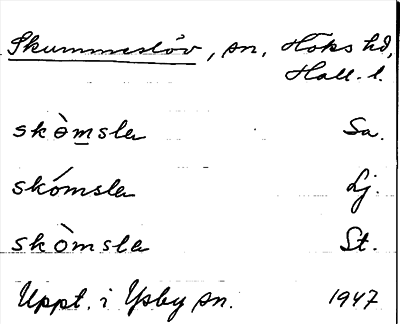 Skummeslöv, sn, Höks hd,
Hall. l.
skòmsla Sa.
skómsla Lj.
skòmsla St.
Uppt. i Ysby sn. 1947